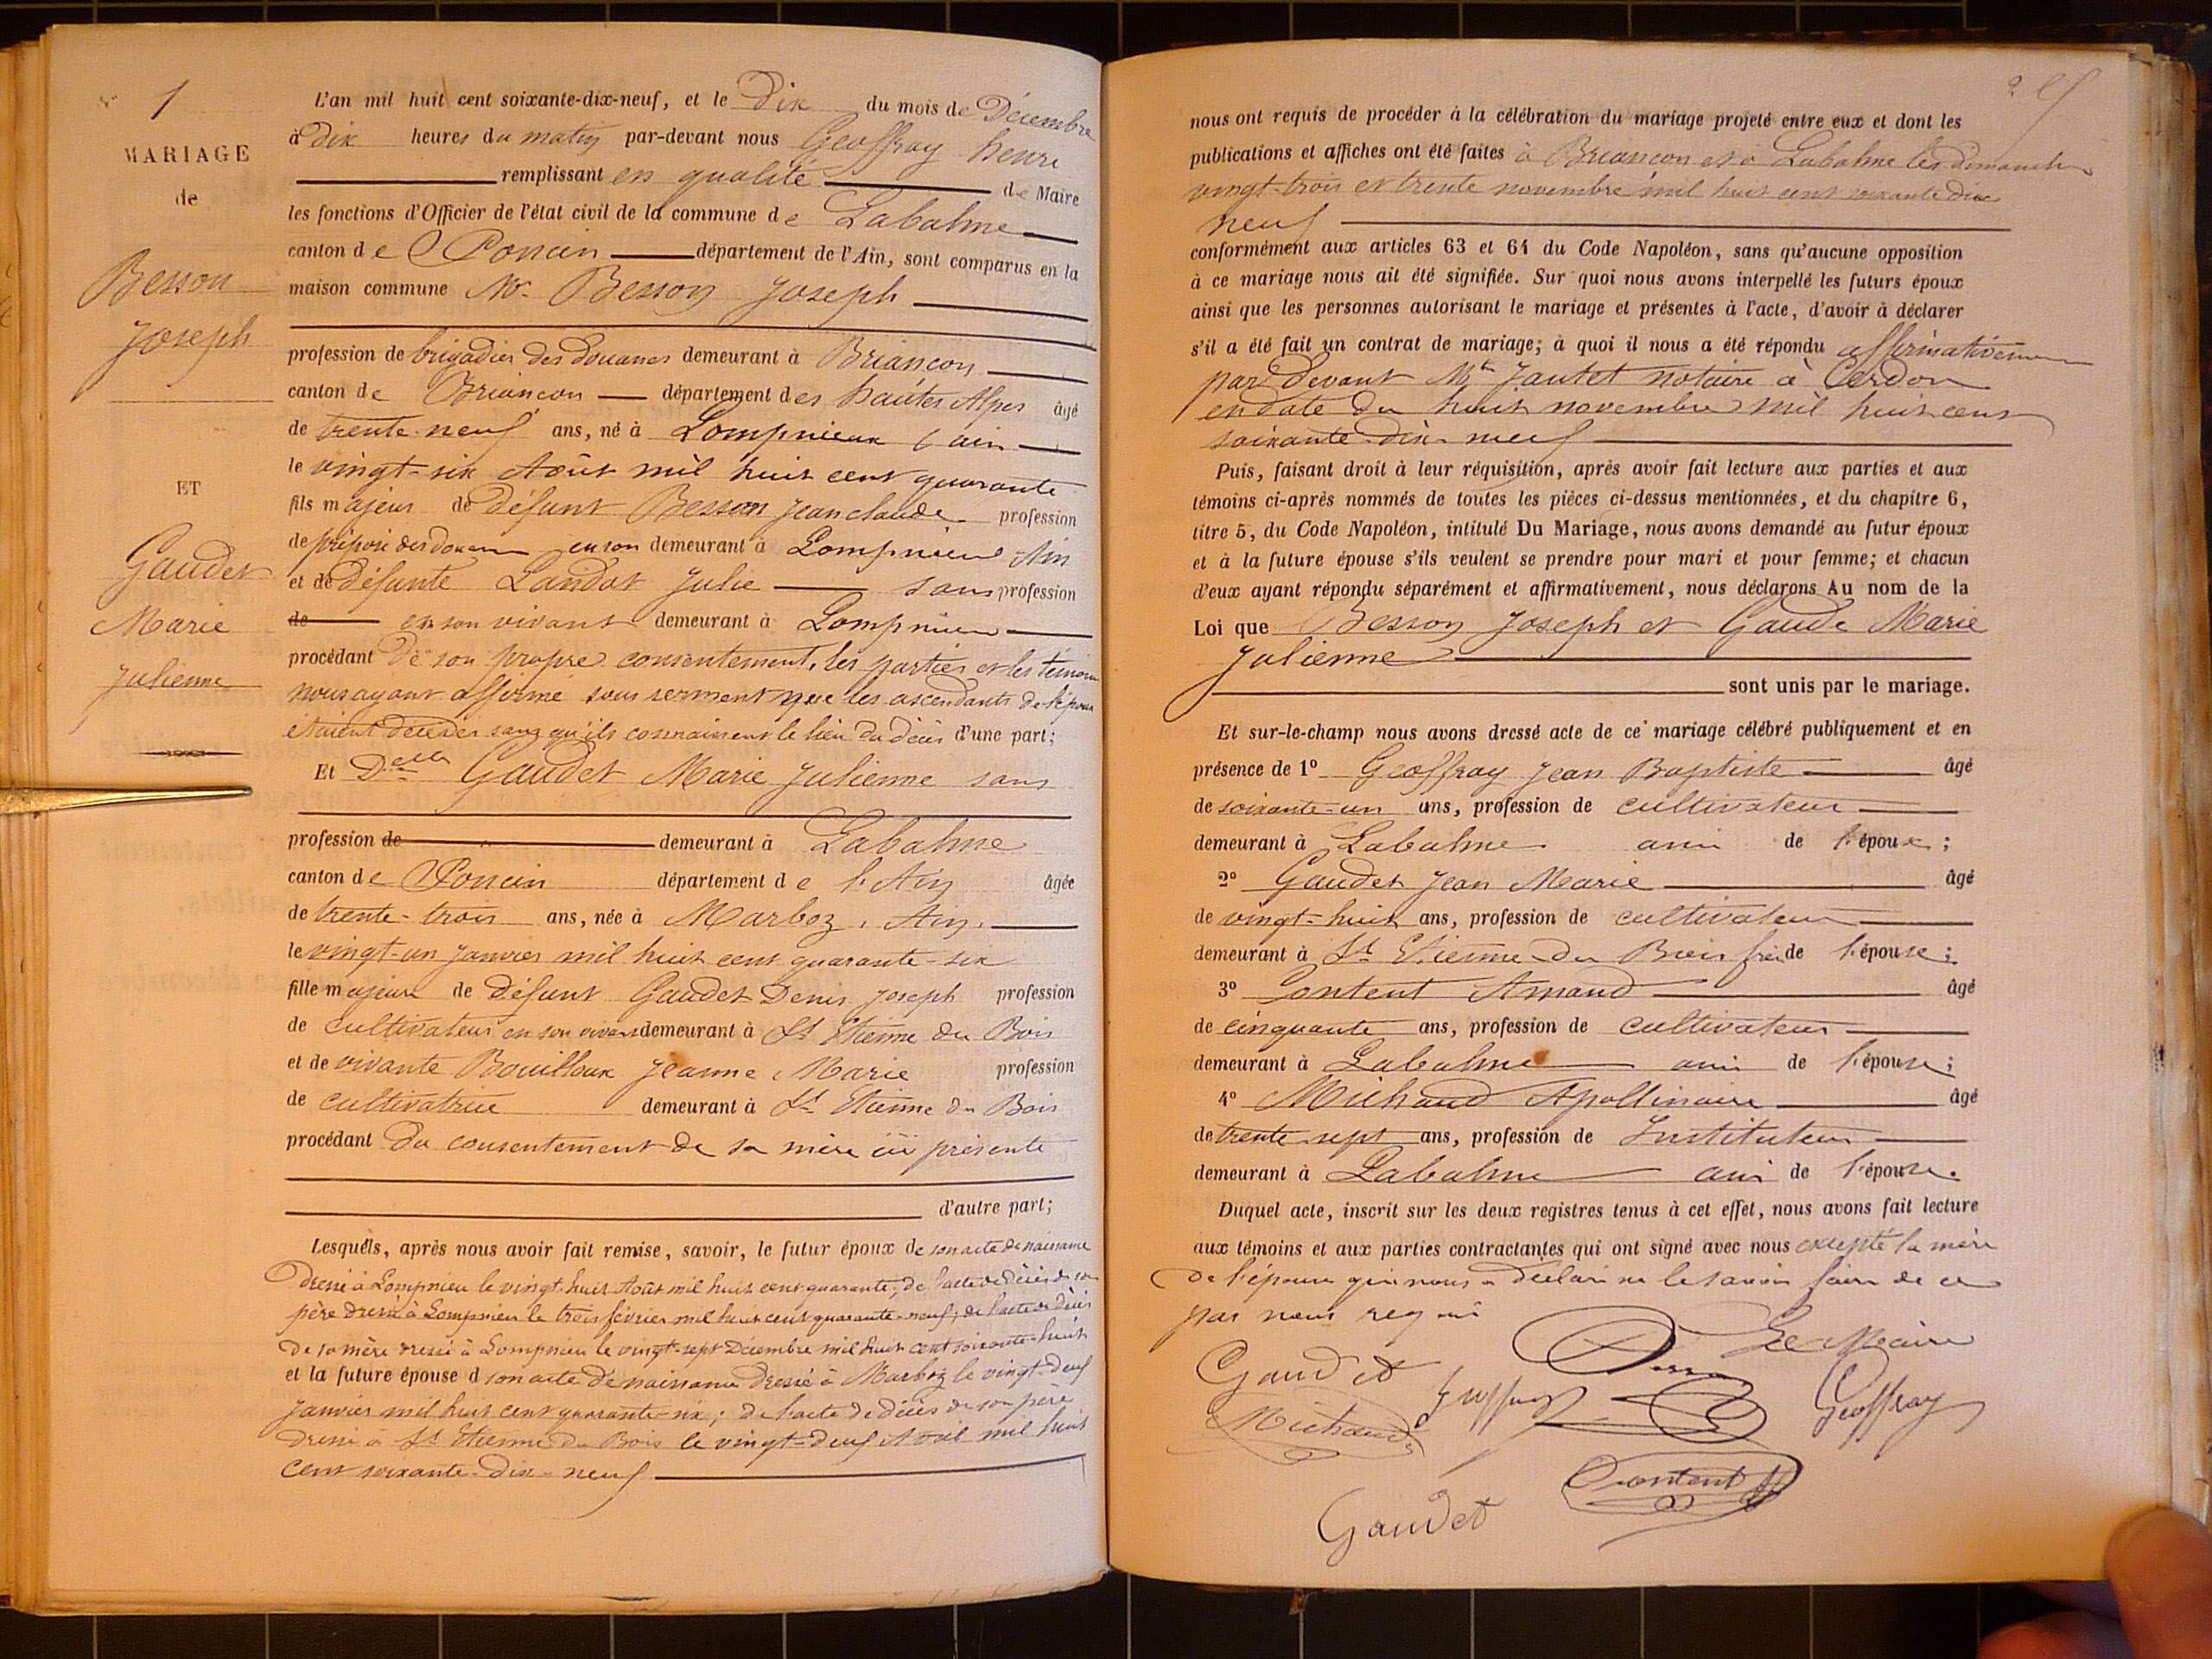 1
MARIAGE
de
Besson
Joseph
ET
Gaudet
Marie
Julienne
L'an mil huit cent soixante-dix-neuf, et le Dix du mois de Décembre
à Dix heures du matin par-devant nous Geoffray henri
remplissant en qualité de Maire
les fonctions d'Officier de l'état civil de la commune de Labalme
canton de Poncin département de l'Ain, sont comparus en la
maison commune Mr. Besson Joseph
profession de brigadier des douanes demeurant à Briançon
canton de Briançon département des hautes Alpes âgé
de trente-neuf ans, né à Lompnieux (ain
le vingt-six Août mil huit cent quarante
fils majeur de défunt Besson Jean claude profession
de préposé des douanes en son demeurant à Lompnieu Ain
et de défunte Landot Julie sans profession
de en son vivant demeurant à Lompnieu
procédant de son propre consentement, les parties et les témoins
nous ayant affirmé sous serment que les ascendants de l'époux
étaient décédés sans qu'ils connaissent le lieu du décès d'une part;
Et Delle Gaudet Marie Julienne sans
profession de demeurant à Labalme
canton de Poncin département de l'Ain âgée
de trente-trois ans, née à Marboz, Ain,
le vingt-un Janvier mil huit cent quarante-six
fille majeure de Défunt Gaudet Denis Joseph profession
de cultivateur en son vivant demeurant à St Etienne du Bois
et de vivante Bouilloux Jeanne Marie profession
de cultivatrice demeurant à St Etienne du Bois
procédant du consentement de sa mère ici présente
d'autre part;
Lesquels, après nous avoir fait remise, savoir, le futur époux de son acte de naissance
Dressé à Lompnieu le vingt-huit Août mil huit cent quarante; de l'acte de Décès de son
père dressé à Lompnieu le trois février mil huit cent quarante-neuf; de l'acte de Décès
de sa mère dressé à Lompnieu le vingt-sept Décembre mil huit cent soixante-huit
et la future épouse d son acte de naissance Dressé à Marboz le vingt-deux
Janvier mil huit cent quarante-six; de l'acte de décès de son père
dressé à St Etienne du Bois le vingt-deux Avril mil huit
cent soixante-dix-neuf
nous ont requis de procéder à la célébration du mariage projeté entre eux et dont les
publications et affiches ont été faites à Briançon et à Labalme les dimanches
vingt-trois et trente novembre mil huit cent soixante dix
neuf
conformément aux articles 63 et 64 du Code Napoléon, sans qu'aucune opposition
à ce mariage nous ait été signifiée. Sur quoi nous avons interpellé les futurs époux
ainsi que les personnes autorisant le mariage et présentes à l'acte, d'avoir à déclarer
s'il a été fait un contrat de mariage; à quoi il nous a été répondu affirmativement
par devant Me Jantet notaire à Cerdon
en date du huit novembre mil huit cent
soixante-dix-neuf
Puis, faisant droit à leur réquisition, après avoir fait lecture aux parties et aux
témoins ci-après nommés de toutes les pièces ci-dessus mentionnées, et du chapitre 6,
titre 5, du Code Napoléon, intitulé Du Mariage, nous avons demandé au futur époux
et à la future épouse s'ils veulent se prendre pour mari et pour femme; et chacun
d'eux ayant répondu séparément et affirmativement, nous déclarons Au nom de la
Loi que Besson Joseph et Gaude Marie
Julienne
sont unis par le mariage.
Et sur-le-champ nous avons dressé acte de ce mariage célébré publiquement et en
présence de 1º Geoffray Jean Baptiste âgé
de soixante-un ans, profession de cultivateur
demeurant à Labalme ami de l'épouse;
2º Gaudet Jean Marie âgé
de vingt-huit ans, profession de cultivateur
demeurant à St Etienne du Bois frère de l'épouse;
3º Content Amand âgé
de cinquante ans, profession de cultivateur
demeurant à Labalme ami de l'épouse;
4º Michaud Apollinaire âgé
de trente sept ans, profession de Instituteur
demeurant à Labalme ami de l'épouse.
Duquel acte, inscrit sur les deux registres tenus à cet effet, nous avons fait lecture
aux témoins et aux parties contractantes qui ont signé avec nous excepté la mère
de l'épouse qui nous a déclaré ne le savoir faire de ce
par nous requis
Le Maire
Gaudet
Geoffray
Michaud
Content
Gaudet